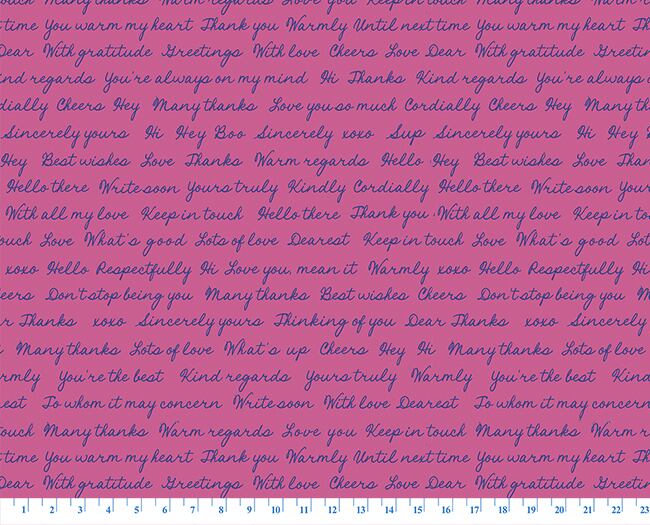 Many thanks Warm regards Love you Keep in touch Many thanks Warm r
time You warm my heart Thank you Warmly Until next time You warm my heart Th
Dear With gratitude Greetings With love Cheers Love Dear With gratitude Greetin
ind regards You're always on my mind Hi Thanks Kind regards You're always o
dially Cheers Hey Many thanks Love you so much Cordially Cheers Hey Many th
Sincerely yours Hi Hey Boo Sincerely xoxo Sup Sincerely yours Hi Hey
Hey Best wishes Love Thanks Warm regards Hello Hey Best wishes Love Than
Hello there Write soon Yours truly Kindly Cordially Hello there Write soon Your
With all my love Keep in touch Hello there Thank you With all my love Keep in to
ouch Love What's good Lots of love Dearest Keep in touch Love What's good Lot
xoxo Hello Respectfully Hi Love you, mean it Warmly xoxo Hello Respectfully Hi
eers Don't stop being you Many thanks Best wishes Cheers Don't stop being you M
r Thanks xoxo Sincerely yours Thinking of you Dear Thanks xoxo Sincerely
Many thanks Lots of love What's up Cheers Hey Hi Many thanks Lots of love
rmly You're the best Kind regards Yours truly Warmly You're the best Kind
est To whom it may concern Write soon With love Dearest To whom it may concern
ouch Many thanks Warm regards Love you Keep in touch Many thanks Warm r
time You warm my heart Thank you Warmly Until next time You warm my heart Th
Dear With gratitude Greetings With love Cheers Love Dear With gratitude Greetin
1 2 3 4 5 6 7 8 9 10 11 12 13 14 15 16 17 18 19 20 21 22 23